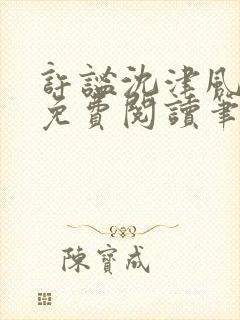 許謐沈津風
免費閱讀筆
陳寶成